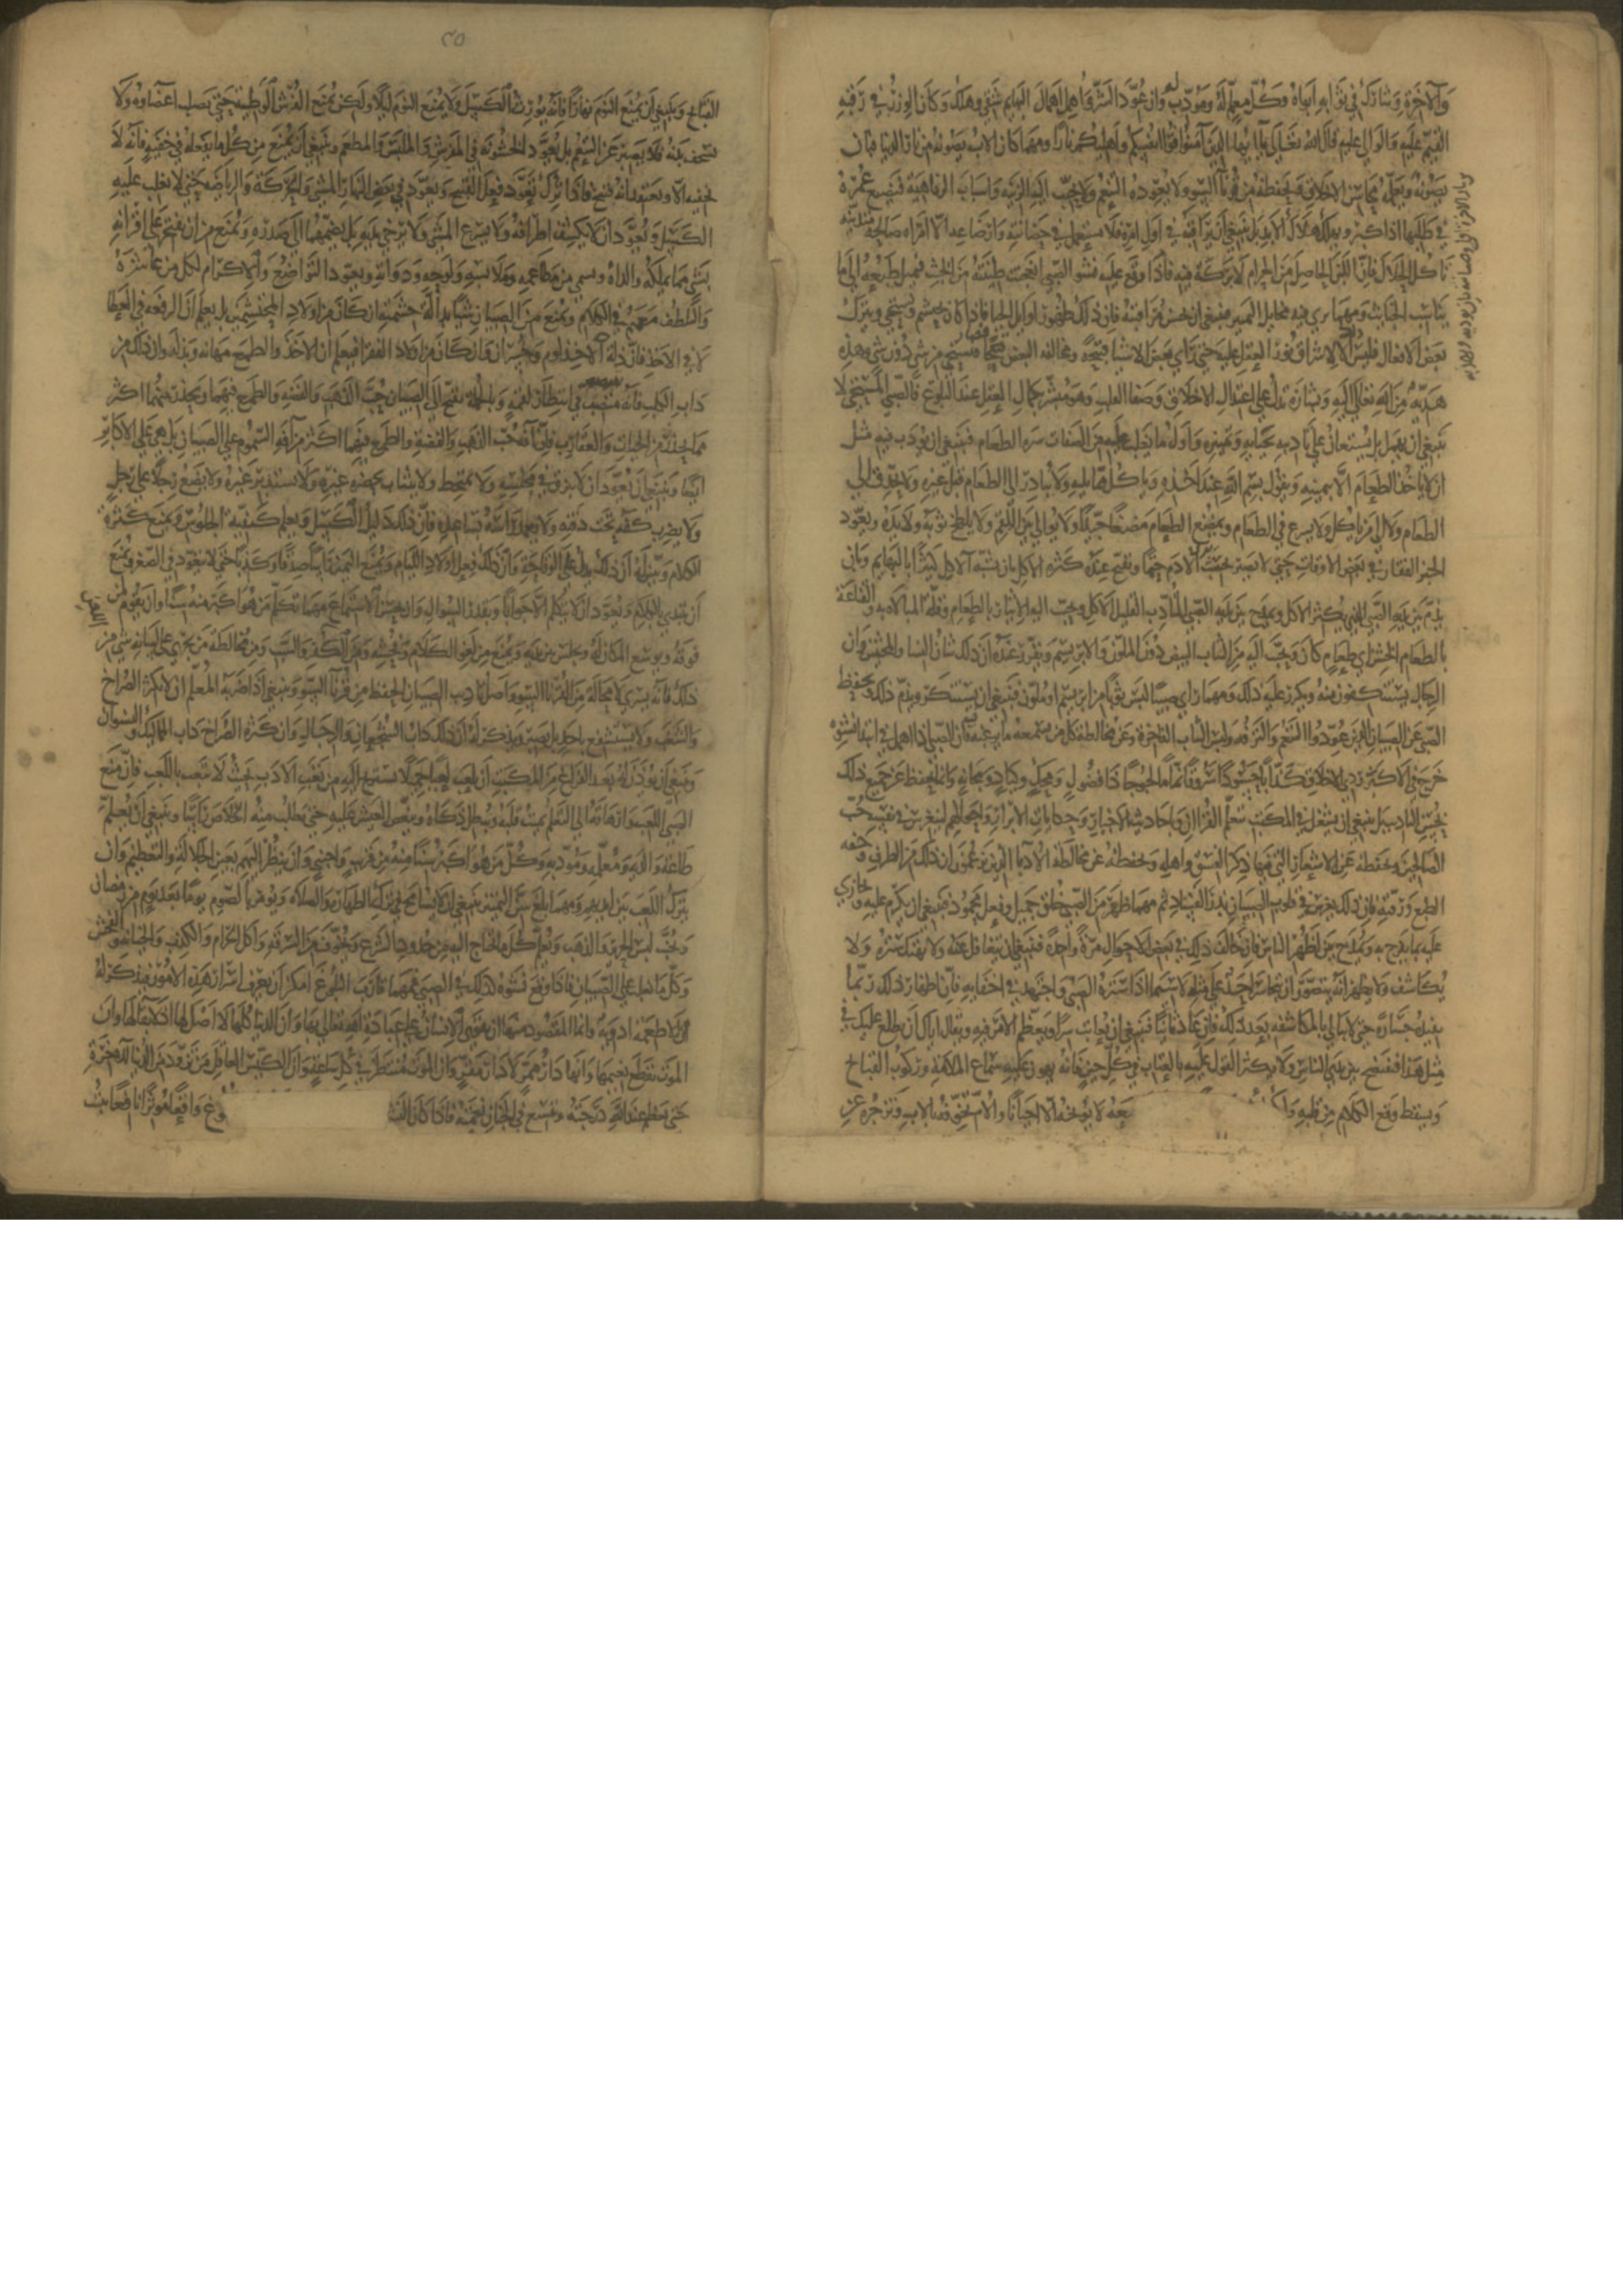 والاخرة ويشاركه في ثوابه ابواه وكل معلم له ومؤدب وان عود الشر واهمل اهمال البهايم شقي وهلك وكان الوزر في رقبة
القيم عليه والوالي عليه قال الله تعالى يا ايها الذين آمنوا قوا انفسكم واهليكم نارا ومهما كان الاب يصونه من نار الدنيا فبان
يصونه ويعلمه محاسن الاخلاق ويحفظه من قرنآ السوء ولا يعوده التنعم ولا يحبب اليه الزينة واسباب الرفاهية فيضيع عمره
في طلبها اذا كبر ويهلك هلاك الابد بل ينبغي ان يراقبه في اول امره فلا يستعمل في حضانته وارضاعه الا امراة صالحة متدينه
تاكل الحلال فان اللبن الحاصل من الحرام لا بركة فيه فاذا وقع عليه نشو الصبي انعجنت طينته من الخبث فيميل طبعه الى ما
يناسب الخبائث ومهما يرى فيه مخايل التمييز فينبغي ان يحسن مراقبته فان ذلك ظهور اوايل الحيا فاذا كان يحتشم ويستحي ويترك
بعض الافعال فليس الا لاشراق نور العقل عليه حتى راي بعض الاشيا قبيحة ومخالفه البعض فصار يستحي من شي دون شي وهذه
هدية من الله تعالى اليه وبشارة تدل على اعتدال الاخلاق وصفا القلب وهو مبشر بكمال العقل عند البلوغ فالصبي المستحي لا
ينبغي ان يهمل بل يستعان على تاديبه بحيايه وتمييزه واول ما يغلب عليه من الصفات شره الطعام فينبغي ان يؤدب فيه مثل
ان لا ياخذ الطعام الا بيمينه ويقول بسم الله عند اخذه وياكل مما يليه ولا يبادر الى الطعام قبل غيره ولا يحدق الى
الطعام ولا الى من ياكل ولا يسرع في الطعام ويمضغ الطعام مضغا جيدا ولا يوالي بين اللقم ولا يلطخ ثوبه ولا يده ويعود
الخبز القفار في بعض الاوقات حتى لا يصير بحيث الادم حتما ويقبح عنده كثرة الاكل بان يشبه الاكل كثيرا بالبهايم وبان
يذم بين يديه الصبي الذي يكثر الاكل ويمدح بين يديه الصبي المتادب القليل الاكل ويحبب اليه الايثار بالطعام وقلة المبالاة به والقناعة
بالطعام الخشن اي طعام كان ويحبب اليه من الثياب البيض دون الملون والابريسم ويقرر عنده ان ذلك شان النسا والمخنثين وان
الرجال يستنكفون منه ويكرر عليه ذلك ومهما راي صبيا لبس ثوبا من ابريسم او ملون فينبغي ان يستنكر ويذم ذلك ويحفظ
الصبي عن الصبيان الذين عودوا التنعم والترفه ولبس الثياب الفاخرة وعن مخالطة كل من يسمعه ما يرغبه فان الصبي اذا اهمل في ابتدا نشوه
خرج في الاكثر ردي الاخلاق كذابا حسودا سروقا نماما لجوجا ذا فضول وضحك وكياد ومجانة وانما يحفظ عن جميع ذلك
بحسن التاديب ثم ينبغي ان يشغل في المكتب بتعلم القران واحاديث الاخيار وحكايات الابرار واحوالهم لينغرس في نفسه حب
الصالحين ويحفظ عن الاشعار التي فيها ذكر العشق واهله ويحفظ عن مخالطة الادبا الذين يزعمون ان ذلك من الظرف
الطبع ورقته فان ذلك يغرس في قلوب الصبيان بذر الفساد ثم مهما ظهر من الصبي خلق جميل وفعل محمود فينبغي ان يكرم عليه ويجازي
عليه بما يفرح به ويمدح بين اظهر الناس فان خالف ذلك في بعض الاحوال مرة واحدة فينبغي ان يتغافل عنه ولا يهتك ستره ولا
يكاشف ولا يظهر انه يتصور ان يتجاسر احد على مثله لا سيما اذا ستره الصبي واجتهد في اخفايه فان اظهار ذلك ربما
يفيده جسارة حتى لا يبالي بالمكاشفة بعد ذلك فان عاد ثانيا فينبغي ان يعاتب سرا ويعظم الامر فيه ويقال اياك ان يطلع عليك في
مثل هذا فتفتضح بين يدي الناس ولا يكثر القول عليه بالعتاب في كل حين فانه يهون عليه سماع الملامة وركوب القبايح
ويسقط وقع الكلام من قلبه معه لا يوبخه الا احيانا والام تخوفه بالاب وتزجره عن
٤٥
القبايح وينبغي ان يمنع النوم نهارا فانه يورث الكسل ولا يمنع النوم ليلا ولكن يمنع الفرش الوطيئة حتى يصلب اعضاوه ولا
يسخف بدنه فلا يصبر عن التنعم بل يعود الخشونة في المفرش والملبس والمطعم وينبغي ان يمنع من كل ما يفعله في خفية فانه لا
يخفيه الا وهو يعتقد انه قبيح فاذا ترك تعود فعل القبيح ويعود في بعض النهار المشي والحركة والرياضه حتى لا يغلب عليه
الكسل ويعود ان لا يكشف اطرافه ولا يسرع المشي ولا يرخي يديه بل يضمهما الى صدره ويمنع من ان يفتخر على اقرانه
بشي مما يملكه والداه وبشي من مطاعمه وملابسه ولوحه ودواته ويعود التواضع والاكرام لكل من عاشره
والتلطف معهم في الكلام ويمنع من ان ياخذ من الصبيان شيا بدا له حشمة ان كان من اولاد المحتشمين بل يعلم ان الرفعة في العطا
لا في الاخذ فان ذلك الاخذ لوم وخسة وان كان من اولاد الفقرا فيعلم ان الاخذ والطمع مهانه وذلة وان ذلك من
داب الكلب فانه يبصبص في انتظار لقمة وبالجملة يقبح الى الصبيان حب الذهب والفضة والطمع فيهما ويحذر منهما اكثر
مما يحذر من الحيات والعقارب فان آفة حب الذهب والفضة والطمع فيهما اكثر من آفة السموم على الصبيان بل هي على الاكابر
ايضا وينبغي ان يعود ان لا يبزق في مجلسه ولا يمتخط ولا يتثاب بحضرة غيره ولا يستدبر غيره ولا يضع رجلا على رجل
ولا يضرب كفه تحت ذقنه ولا يعمد راسه بساعده فان ذلك دليل الكسل ويعلم كيفية الجلوس ويمنع كثرة
الكلام ويبين له ان ذلك يدل على الوقاحة وان ذلك فعل اولاد الليام ويمنع اليمين راسا صدقا وكذبا حتى لا يتعود في الصغر ويمنع
ان يبتدي بالكلام ويعود ان لا يتكلم الا جوابا وبقدر السوال وان يحسن الاستماع مهما تكلم من هو اكبر منه سنا وان يقوم لمن
فوقه ويوسع المكان له ويجلس بين يديه ويمنع من لغو الكلام وفحشه ومن الكفر والسب ومن مخالطة من يجري على لسانه شي من
ذلك فانه يسري لا محالة من القرنا السوء واصل تاديب الصبيان الحفظ من قرنآ السوء وينبغي اذا ضربه المعلم ان لا يكثر الصراخ
والشغب ولا يستشفع باحد بل يصبر ويذكر له ان ذلك داب الشجعان والرجال وان كثرة الصراخ داب المماليك والنسوان
وينبغي ان يؤذن له بعد الفراغ من المكتب ان يلعب لعبا جميلا يستريح اليه من تعب الادب بحيث لا يتعب باللعب فان منع
الصبي اللعب وارهاقه الى التعلم يميت قلبه ويبطل ذكاه وينغص العيش عليه حتى يطلب منه الخلاص راسا وينبغي ان يعلم
طاعة والديه ومعلمه ومؤدبه وكل من هو اكبر سنا منه من قريب واجنبي وان ينظر اليهم بعين الجلالة والتعظيم وان
يترك اللعب بين ايديهم ومهما بلغ سن التمييز فينبغي ان لا يسامح في ترك الطهارة والصلاة ويؤمر بالصوم يوما بعد يوم من رمضان
ويجنب لبس الحرير والذهب ويعلم كل ما يحتاج اليه من حدود الشرع ويخوف من السرقة واكل الحرام والكذب والخيانة والفحش
وكل ما يغلب على الصبيان فاذا وقع نشوه كذلك في الصبي فمهما قارب البلوغ امكن ان يعرف اسرار هذه الامور فيذكر له
ان الاطعمة ادوية وانما المقصود منها ان يقوى الانسان على عبادة الله تعالى بها وان الدنيا كلها لا اصل لها اذ لا بقا لها وان
الموت يقطع نعيمها وانها دار ممر لا دار مقر وان الموت منتظر في كل ساعة وان الكيس العاقل من تزود من الدنيا للاخرة
حتى يعظم عند الله درجته ويتسع في الجنان نعمته فاذا كان النشو